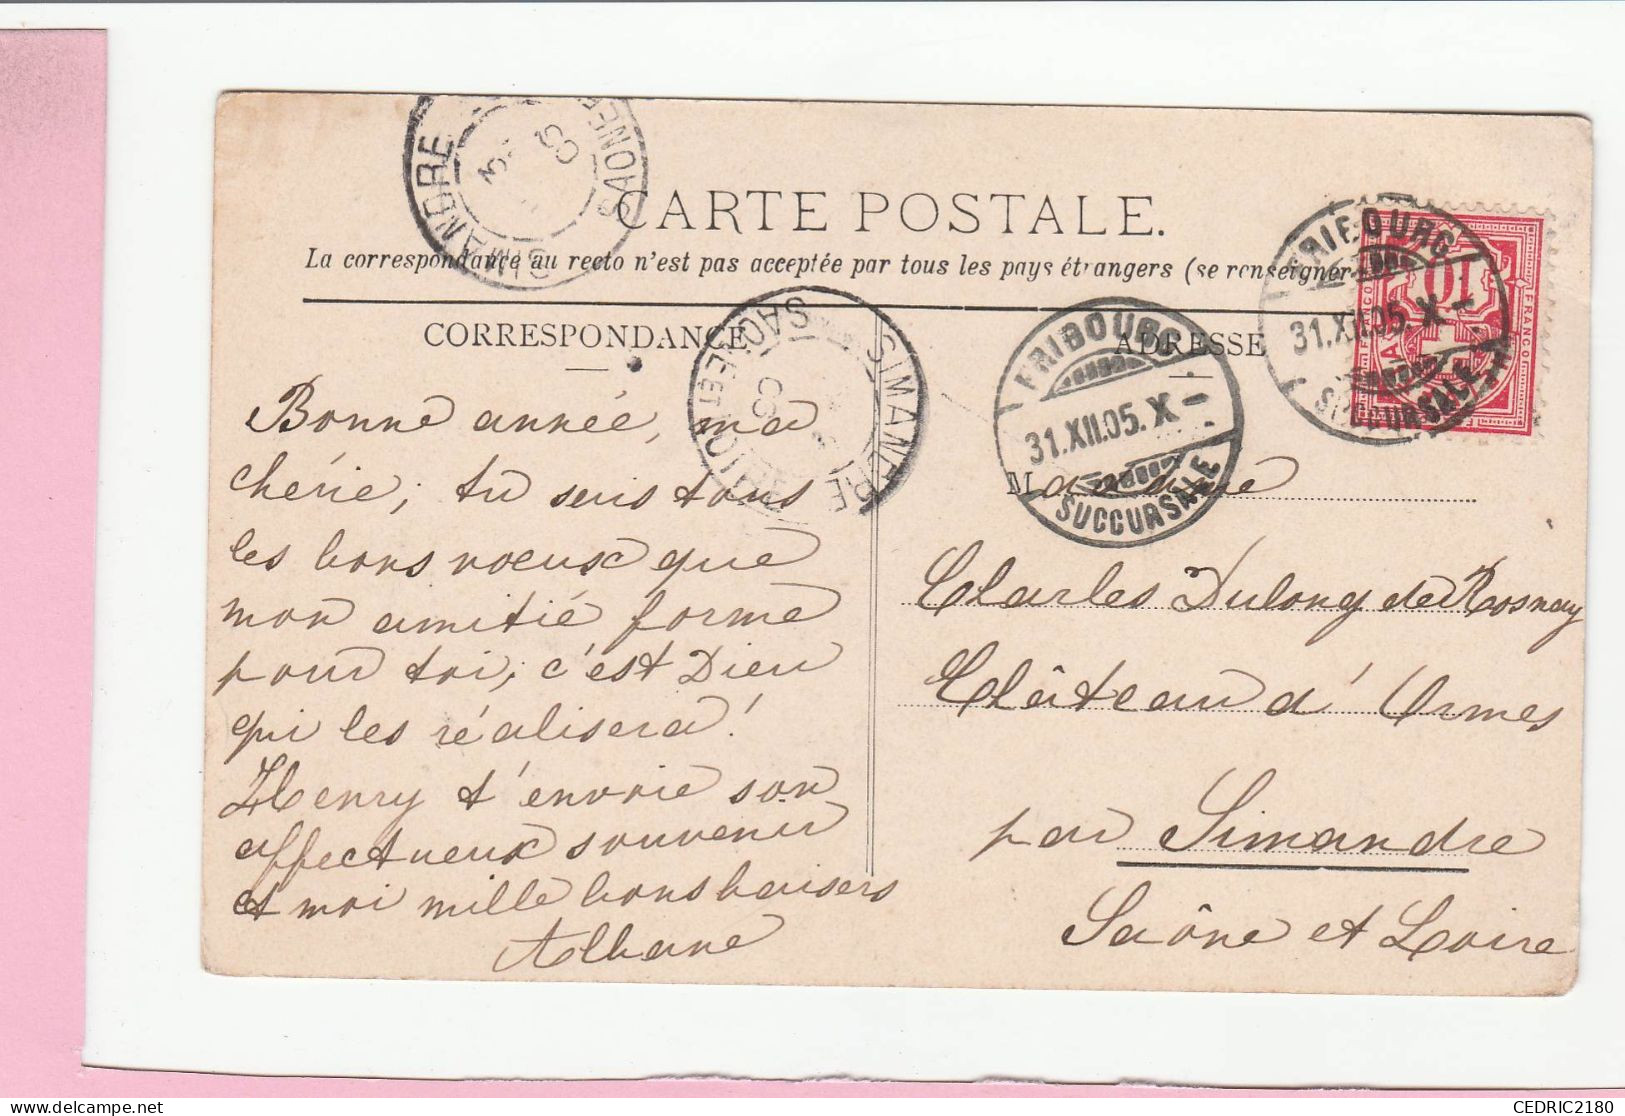 SIMANDRE
SAONE
CARTE POSTALE.
La correspondance au recto n'est pas acceptée par tous les pays étrangers (se renseigner
FRIBOURG
31.XII.05. X
SUCCURSALE
10
FRANCO
CORRESPONDANCE
ADRESSE
SIMANDRE
SAONE ET LOIRE
FRIBOURG
31.XII.05. X
SUCCURSALE
Bonne année, ma
chérie; tu sais tous
les bons voeux que
mon amitié forme
pour toi; c'est Dieu
qui les réalisera!
Henry t'envoie son
affectueux souvenir
et moi mille bons baisers
Albane
Madame
Charles Dulong de Rosnay
Château d'Ormes
par Simandre
Saône et Loire
CEDRIC2180